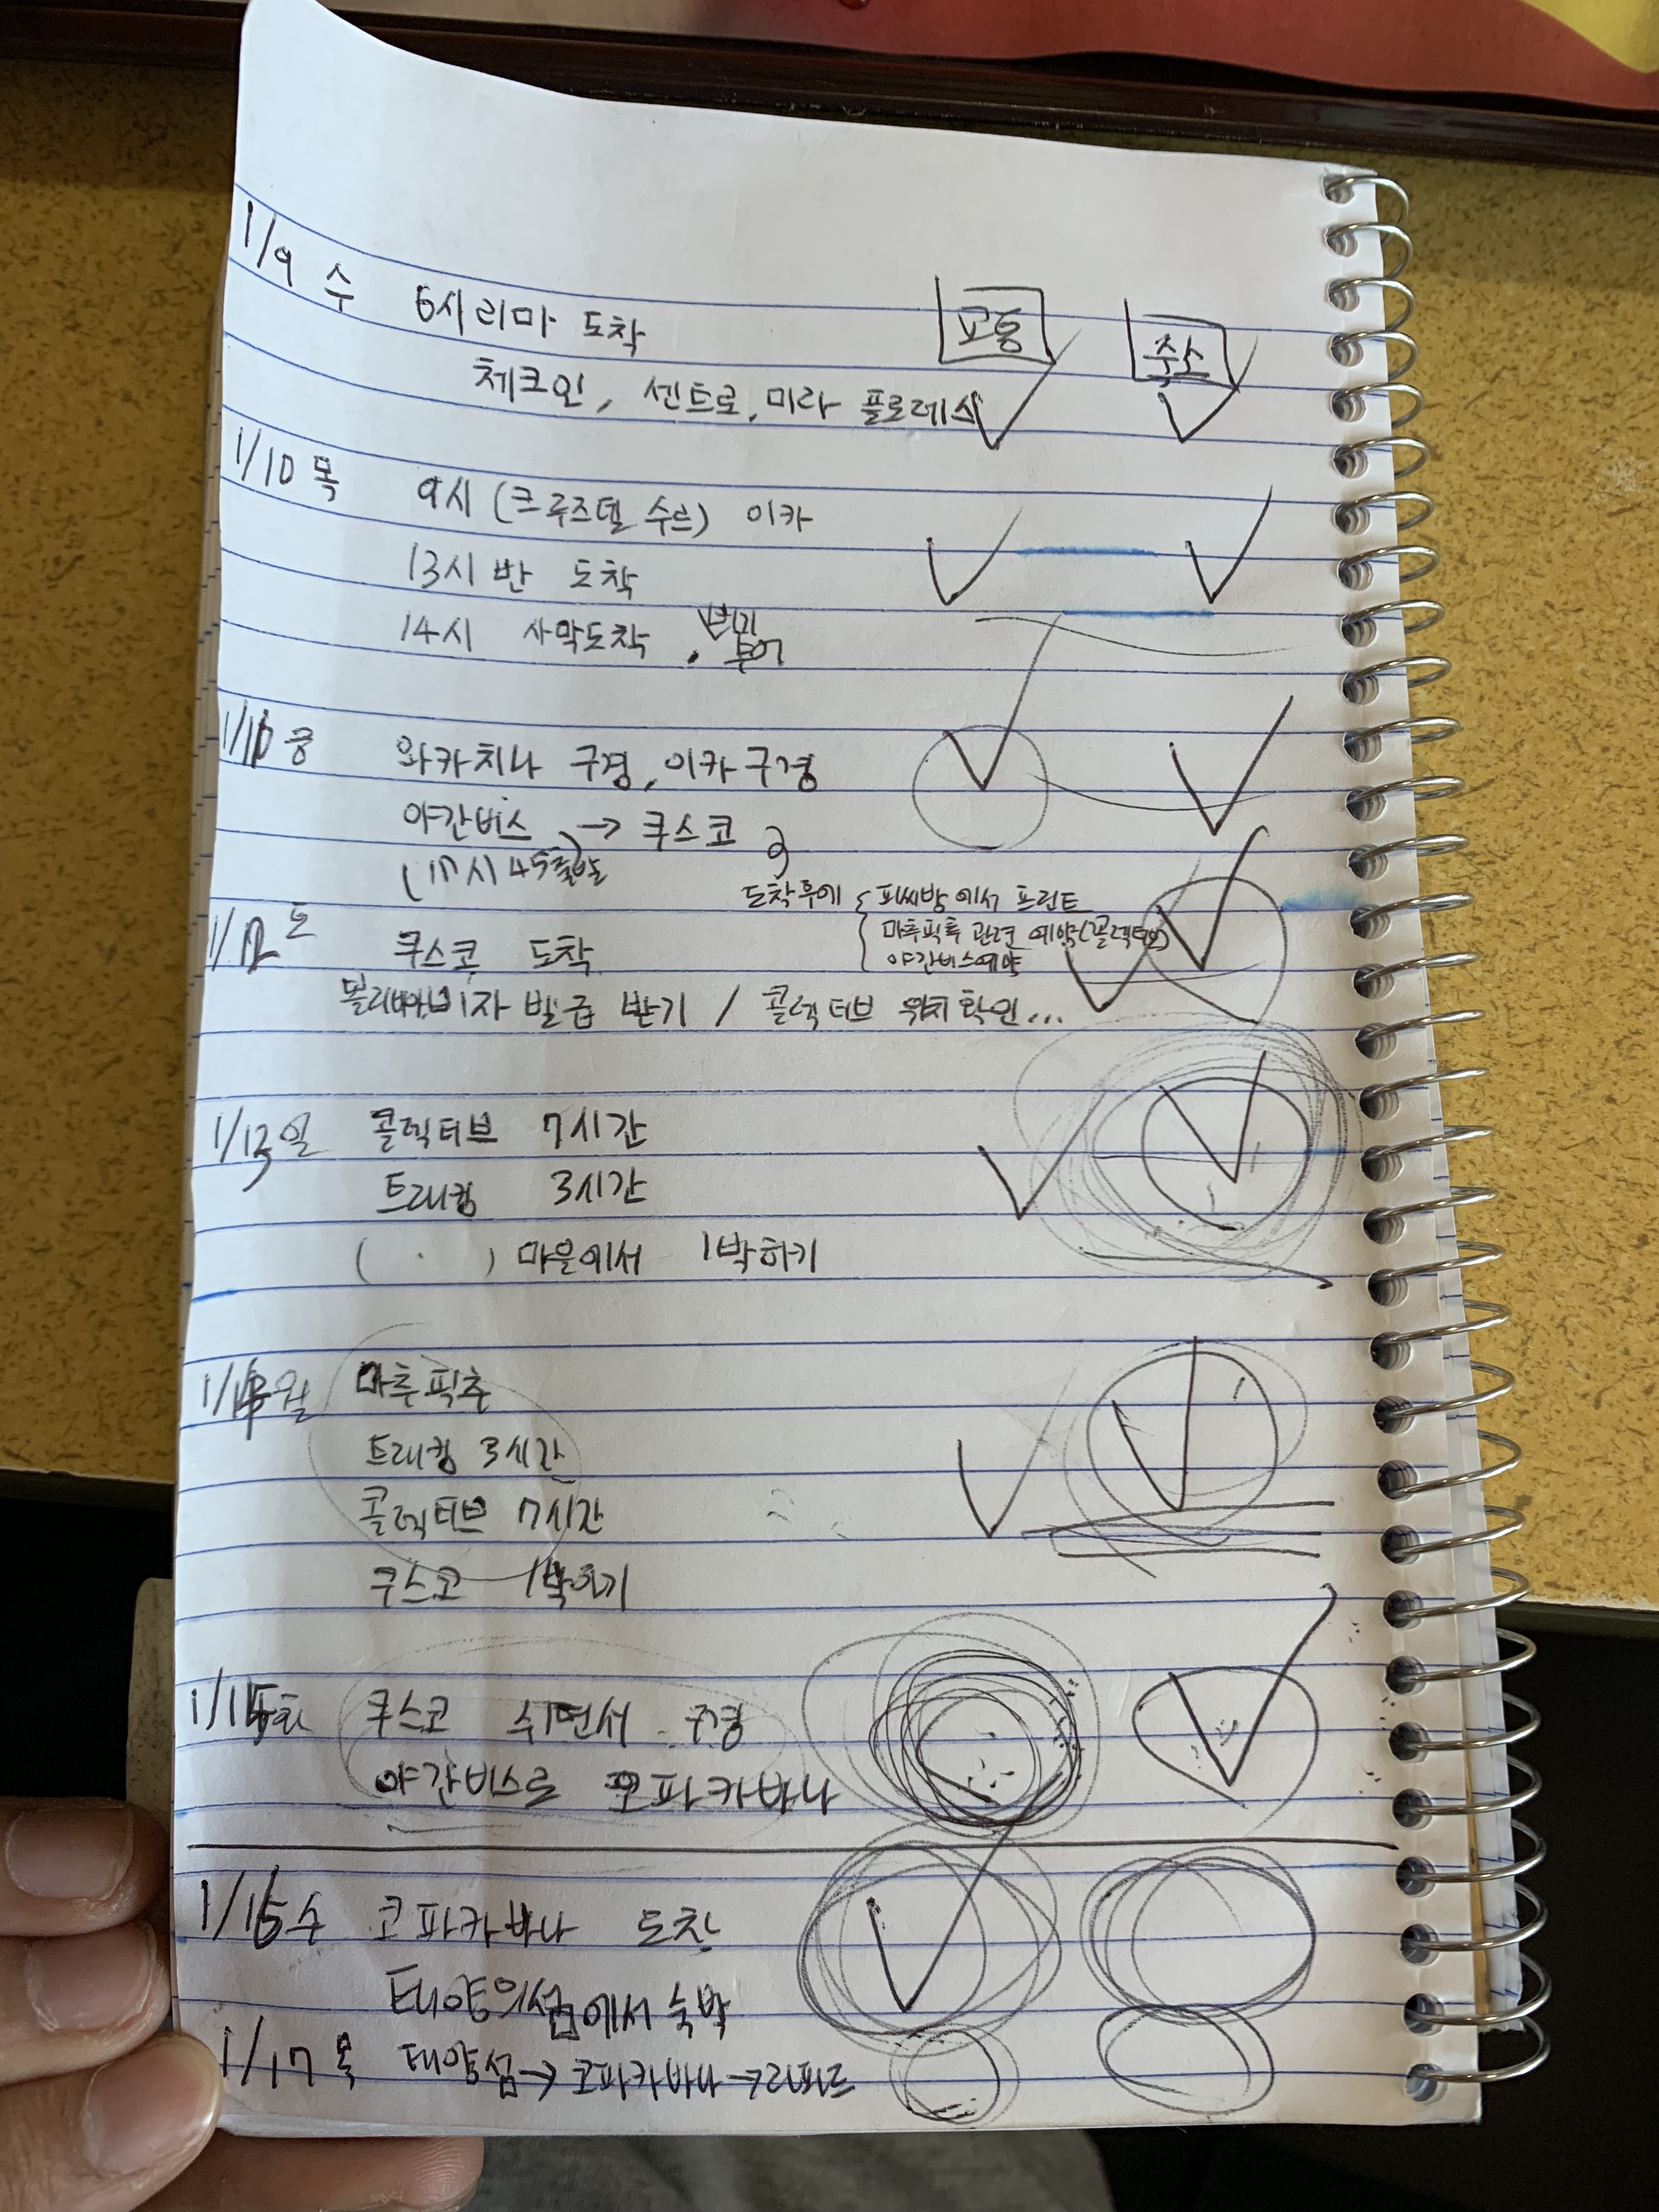 1/9 수 6시 리마 도착 교통 숙소
체크인, 센트로, 미라 플로레스
1/10 목 9시 (크루즈델 수르) 이카
13시 반 도착
14시 사막도착, 버기
투어
1/11 금 와카치나 구경, 이카구경
야간버스 → 쿠스코
(17시 45출발)
도착후에 { 피씨방에서 프린트
마추픽추 관련 예약(콜렉티보)
야간버스예약
1/12 토 쿠스코 도착
볼리비아 비자 발급 받기 / 콜렉티브 위치확인...
1/13 일 콜렉티브 7시간
트래킹 3시간
( ) 마을에서 1박하기
1/14 월 마추픽추
트래킹 3시간
콜렉티브 7시간
쿠스코 1박하기
1/15 화 쿠스코 쉬면서 구경
야간버스로 코파카바나
1/16 수 코파카바나 도착
태양의섬에서 숙박
1/17 목 태양섬→코파카바나→라파즈